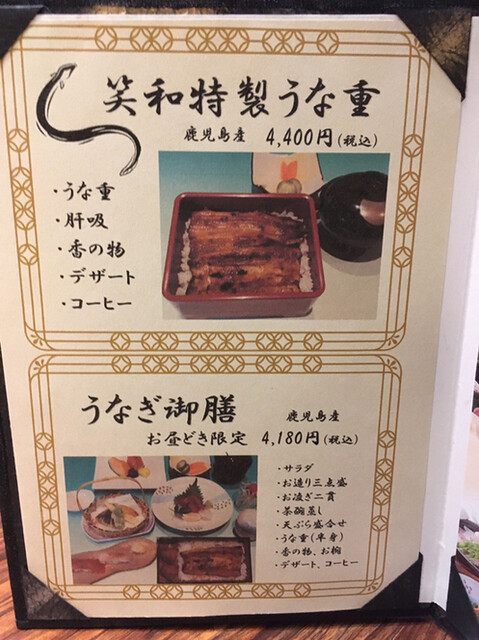 笑和特製うな重
鹿児島産 4,400円(税込)
・うな重
・肝吸
・香の物
・デザート
・コーヒー
うなぎ御膳 鹿児島産
お昼どき限定 4,180円(税込)
・サラダ
・お造り三点盛
・お凌ぎ二貫
・茶碗蒸し
・天ぷら盛合せ
・うな重(半身)
・香の物、お椀
・デザート、コーヒー